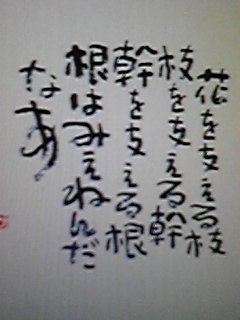 花を支える枝
枝を支える幹
幹を支える根
根はみえねんだ
なあ